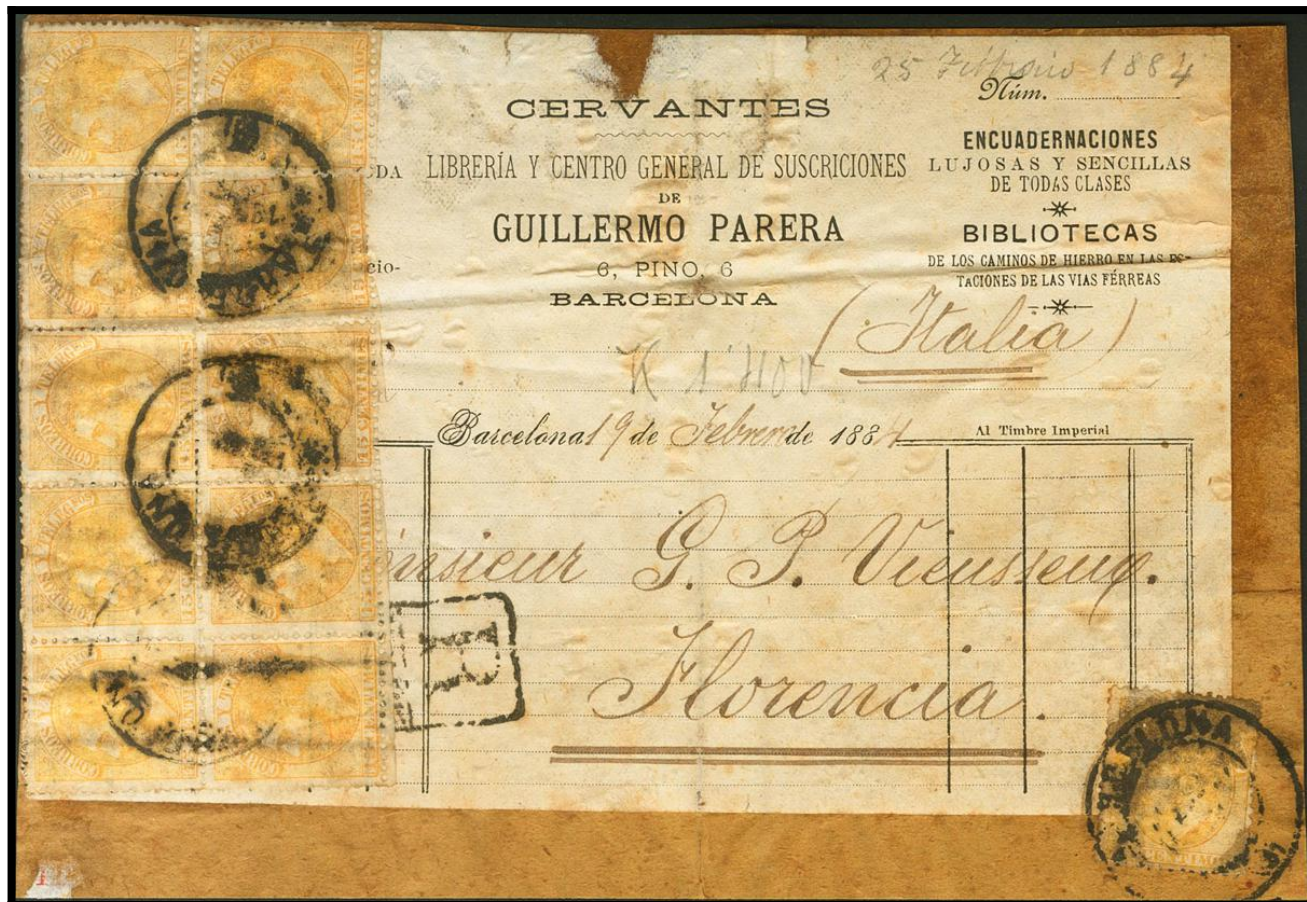 25 Febbraio 1884
Núm.
CERVANTES
LIBRERÍA Y CENTRO GENERAL DE SUSCRICIONES
DE
GUILLERMO PARERA
6, PINO, 6
BARCELONA
ENCUADERNACIONES
LUJOSAS Y SENCILLAS
DE TODAS CLASES
BIBLIOTECAS
DE LOS CAMINOS DE HIERRO EN LAS ES-
TACIONES DE LAS VIAS FÉRREAS
(Italia)
Barcelona 19 de Febrero de 1884
Al Timbre Imperial
G. P. Vieusseux.
Florencia.
CORREOS Y TELEGFOS
15 CENTIMOS
BARCELONA
R